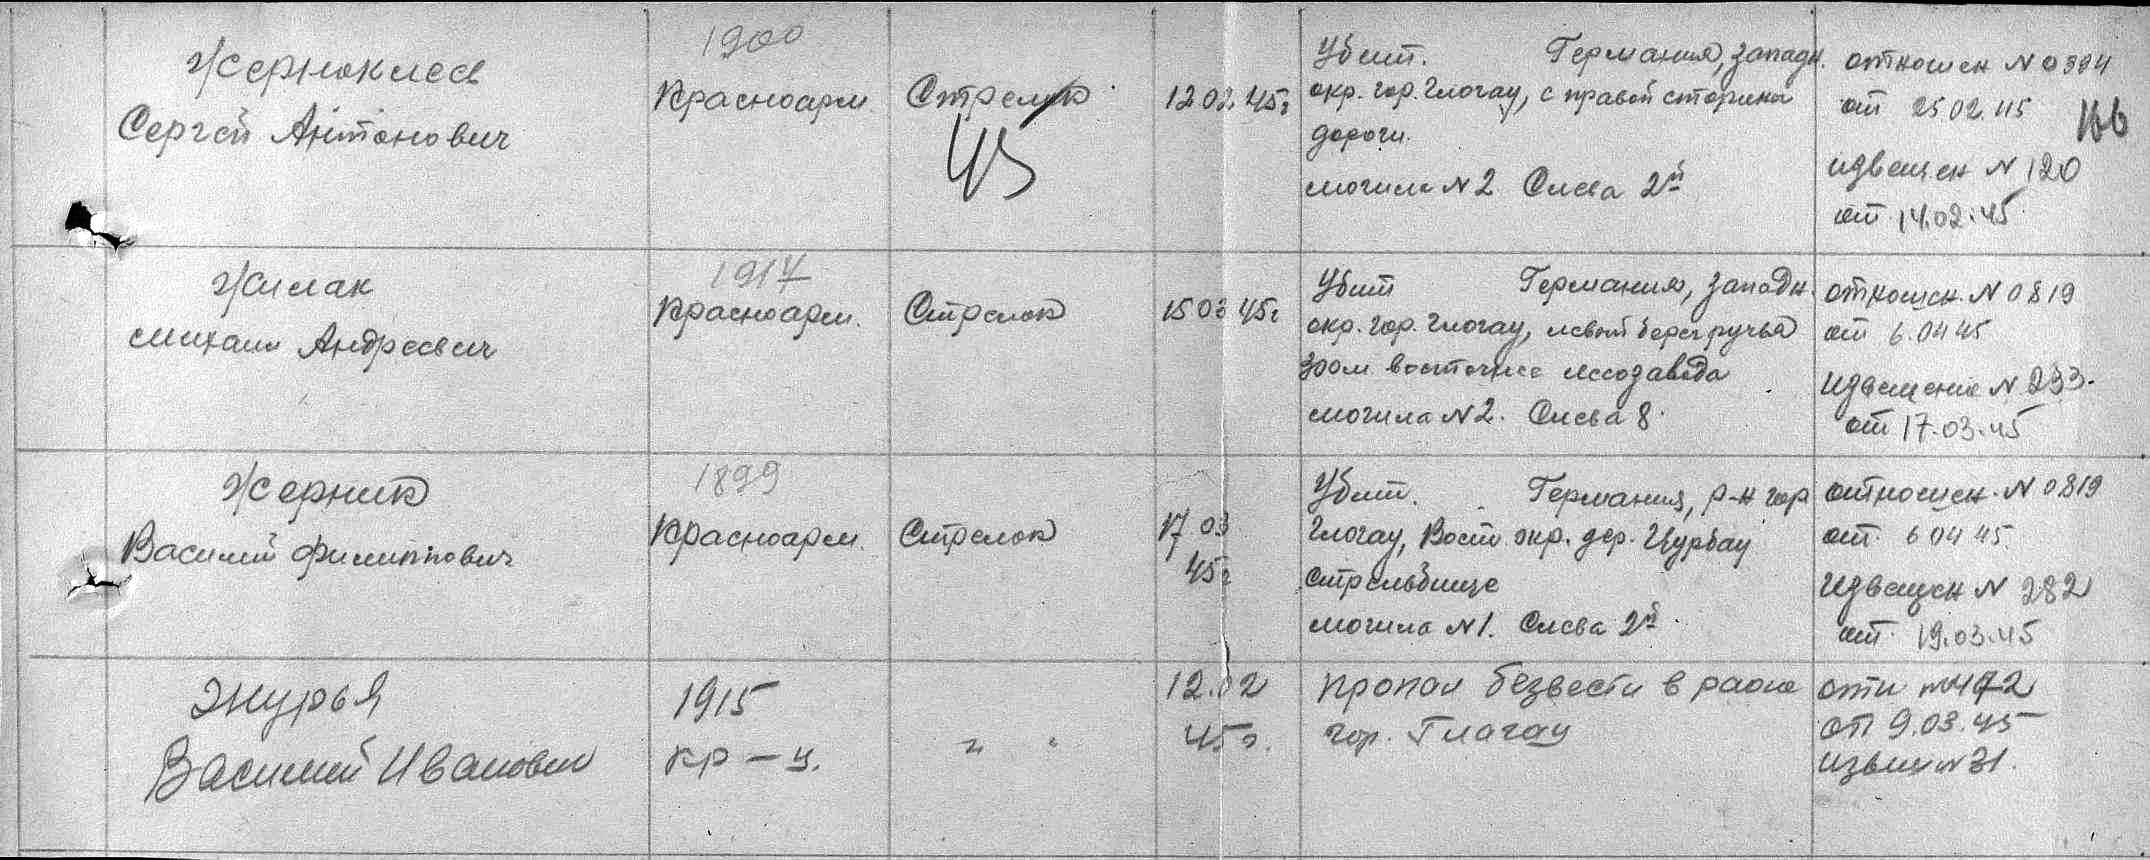 Жерноклеев
Сергей Антонович
1900
Красноарм.
Стрелок
45
12 02. 45г
Убит. Германия, западн.
окр. гор. Глогау, с правой стороны
дороги.
могила N 2 Слева 2й
отношен N 0394
от 25 02. 45
166
извещен N 120
от 14.02.45
Жилак
Михаил Андреевич
1917
Красноарм.
Стрелок
15 03 45г
Убит Германия, западн.
окр. гор. Глогау, левый берег ручья
300м восточнее лесозавода
могила N 2. Слева 8
отношен. N 0819
от 6.04 45
Извещение N 233.
от 17.03.45
Жерник
Василий Филиппович
1899
Красноарм.
Стрелок
17 03
45г
Убит. Германия, р-н гор
Глогау, Вост. окр. дер. Цурбау
стрельбище
могила N 1. Слева 2й
отношен. N 0819
от 6 04 45.
Извещен N 282
от 19.03.45
Журья
Василий Иванович
1915
кр-ц.
" "
12.02
45г.
пропал безвести в раоне
гор. Глагау
отн N 472
от 9.03.45
извещ N 31.